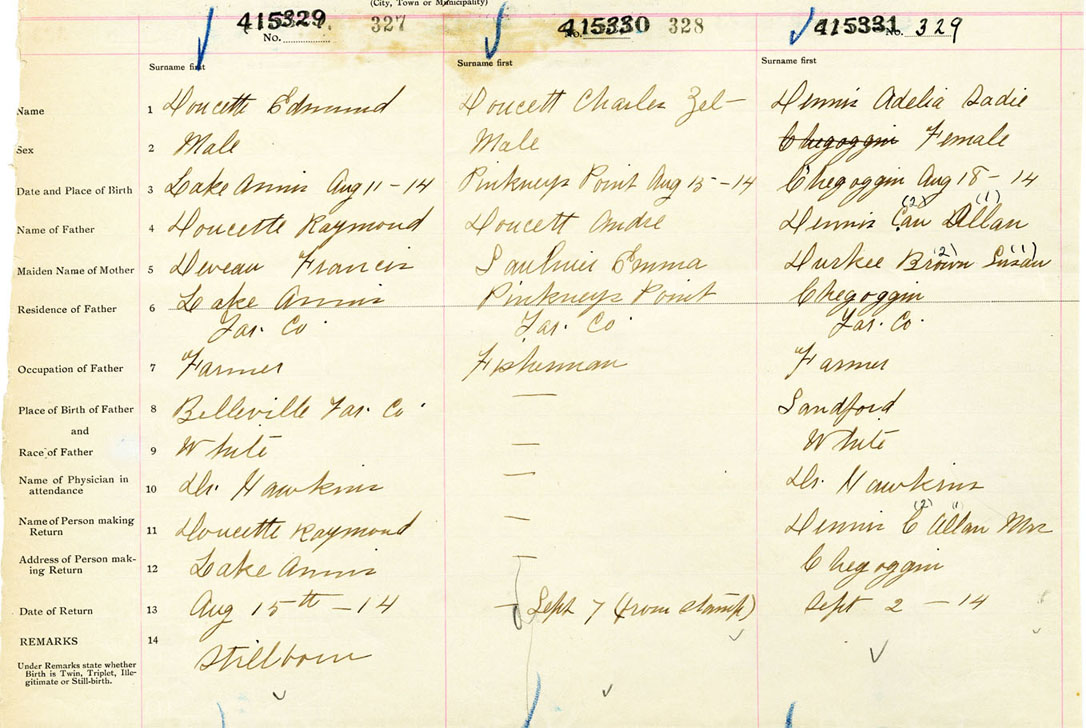 (City, Town or Municipality)
415329 327
No.
415330 328
415331 No. 329
Surname first
Surname first
Surname first
Name 1 Doucette Edmund
Doucett Charles Zel-
Dennis Adelia Sadie
Sex 2 Male
Male
Chegoggin Female
Date and Place of Birth 3 Lake Annis Aug 11 - 14
Pinkneys Point Aug 15 - 14
Chegoggin Aug 18 - 14
Name of Father 4 Doucette Raymond
Doucett Andre
(2) (1)
Dennis Allan
Maiden Name of Mother 5 Deveau Francis
Saulnier Emma
(2) (1)
Durkee Brown Susan
Residence of Father 6 Lake Annis
Yar. Co.
Pinkneys Point
Yar. Co.
Chegoggin
Yar. Co.
Occupation of Father 7 Farmer
Fisherman
Farmer
Place of Birth of Father 8 Belleville Yar. Co.
—
Sandford
and
Race of Father 9 White
—
White
Name of Physician in
attendance 10 Dr. Hawkins
—
Dr. Hawkins
Name of Person making
Return 11 Doucette Raymond
—
(2) (1)
Dennis C Allan Mrs
Address of Person mak-
ing Return 12 Lake Annis
—
Chegoggin
Date of Return 13 Aug 15th - 14
— Sept 7 (from stamp)
Sept 2 - 14
REMARKS 14
Stillborn
Under Remarks state whether
Birth is Twin, Triplet, Ille-
gitimate or Still-birth.